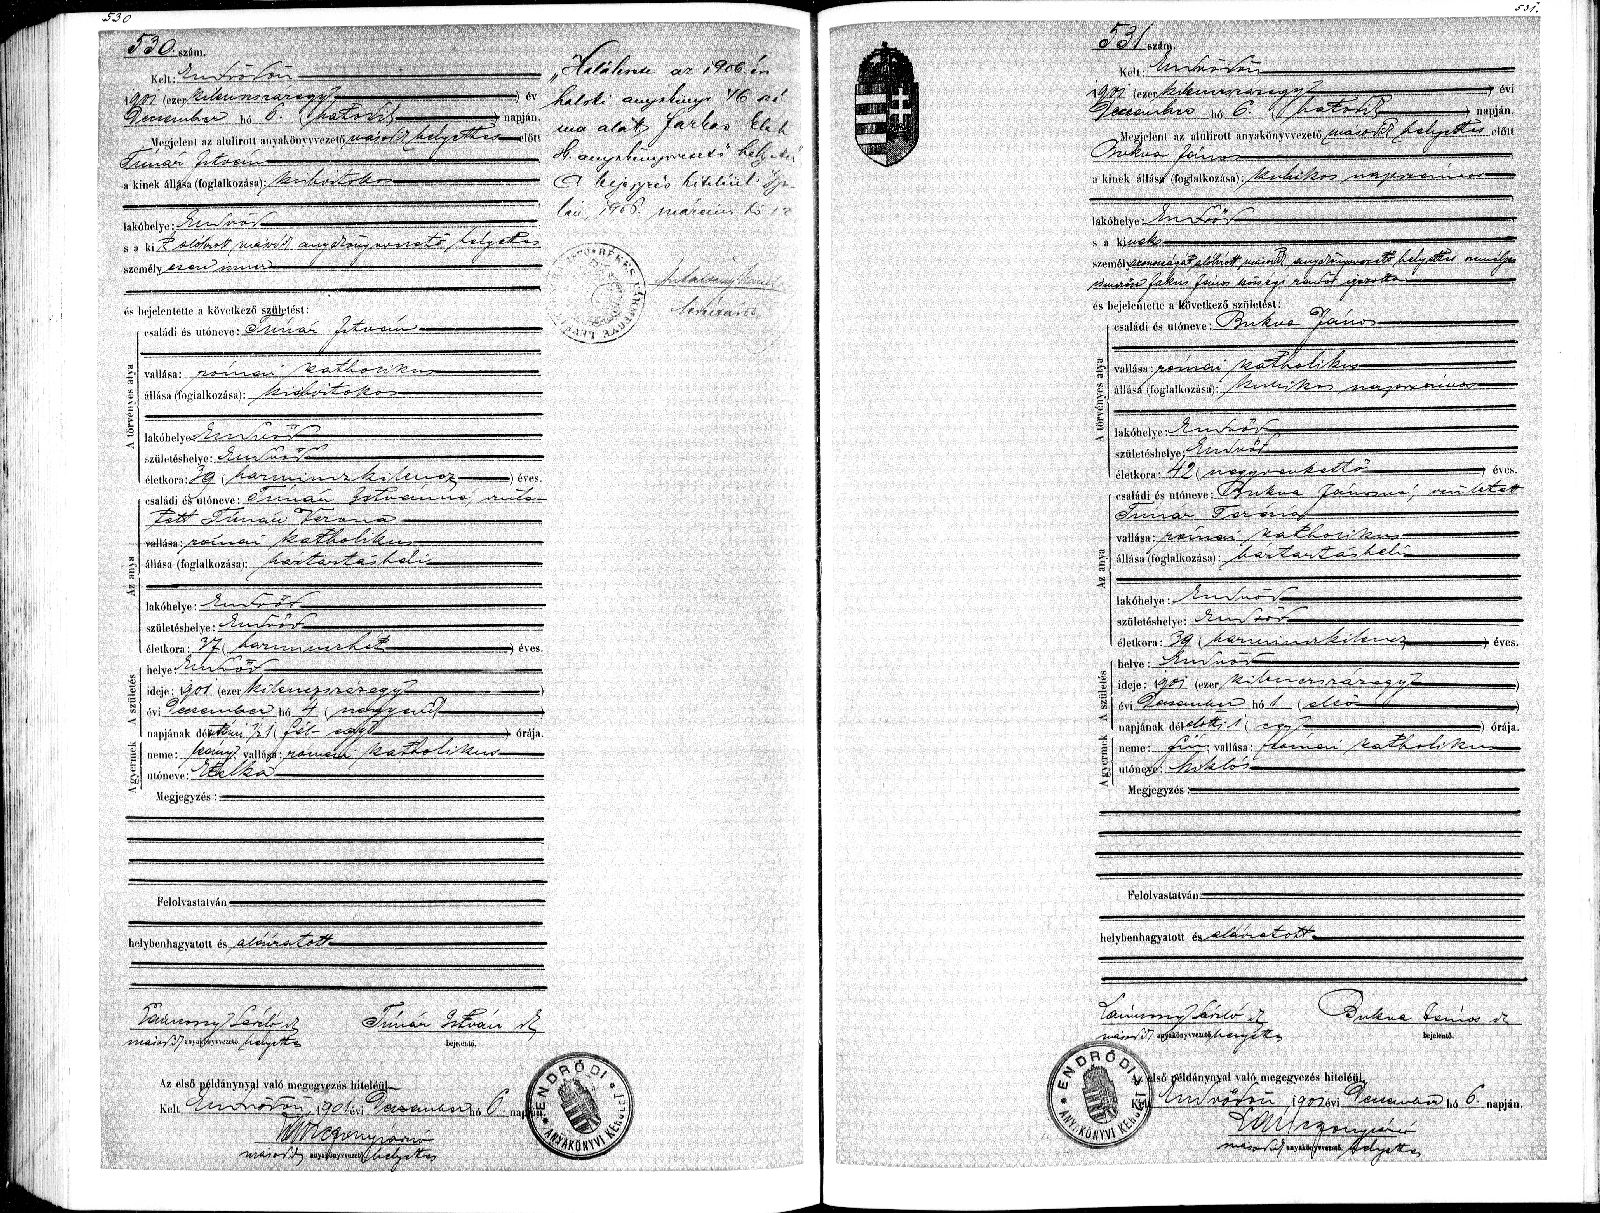 530
530. szám.
Kelt: Endrődön
1901 (ezer kilenczszázegy) év
December hó 6. (hatodik) napján.
Megjelent az alulirott anyakönyvvezető második helyettes előtt
Tímár István
a kinek állása (foglalkozása):
lakóhelye: Endrőd
s a kit alólirott második anyakönyvvezető helyettes
személyesen ismer
és bejelentette a következő születést:
A törvényes atya
családi és utóneve: Tímár István
vallása: római katholikus
állása (foglalkozása):
lakóhelye: Endrőd
születéshelye: Endrőd
életkora: 39 (harminczkilencz) éves.
Az anya
családi és utóneve: Tímár Istvánné, szüle-
tett Tímár Verona
vallása: római katholikus
állása (foglalkozása): háztartásbeli
lakóhelye: Endrőd
születéshelye: Endrőd
életkora: 37 (harminczhét) éves.
A születés
helye: Endrőd
ideje: 1901 (ezer kilenczszázegy)
évi December hó 4 (negyedik)
napjának dél ½1 (fél egy) órája.
A gyermek
neme: leány; vallása: római katholikus
utóneve: Etelka
Megjegyzés:
Felolvastatván
helybenhagyatott és aláiratott
László sk
másodk anyakönyvvezető helyettes
Tímár István sk
bejelentő.
Az első példánynyal való megegyezés hiteléül
Kelt Endrődön, 1901 évi December hó 6. napján
másodk anyakönyvvezető helyettes
ENDRŐDI
ANYAKÖNYVI KERÜLET
„Halálesete az 1906. év
halotti anyakönyv 46 szá
ma alatt Farkas
H. anyakönyvvezető helyettes
A bejegyzés hiteléül Gyu-
lán, 1906. március hó
BÉKÉS VÁRMEGYE LEVÉL
531.
531 szám.
Kelt: Endrődön
1901 (ezer kilenczszázegy) évi
December hó 6. (hatodik) napján.
Megjelent az alulirott anyakönyvvezető másodk helyettes előtt
Bukva János
a kinek állása (foglalkozása): kubikos napszámos
lakóhelye: Endrőd
s a kinek
személyazonosságát alólirott másodk anyakönyvvezető helyettes személyes
ismerőse János községi rendőr igazolta
és bejelentette a következő születést:
A törvényes atya
családi és utóneve: Bukva János
vallása: római katholikus
állása (foglalkozása): kubikos napszámos
lakóhelye: Endrőd
születéshelye: Endrőd
életkora: 42 (negyvenkettő) éves.
Az anya
családi és utóneve: Bukva Jánosné, született
Tímár Terézia
vallása: római katholikus
állása (foglalkozása): háztartásbeli
lakóhelye: Endrőd
születéshelye: Endrőd
életkora: 39 (harminczkilencz) éves.
A születés
helye: Endrőd
ideje: 1901 (ezer kilenczszázegy)
évi December hó 1 (első)
napjának délelőtti 1 (egy) órája.
A gyermek
neme: fiú; vallása: római katholikus
utóneve: Miklós
Megjegyzés:
Felolvastatván
helybenhagyatott és aláiratott
László sk
másodk anyakönyvvezető helyettes
Bukva János sk
bejelentő.
Az első példánynyal való megegyezés hiteléül
Kelt Endrődön 1901 évi December hó 6. napján.
másodk anyakönyvvezető helyettes
ENDRŐDI
ANYAKÖNYVI KERÜLET